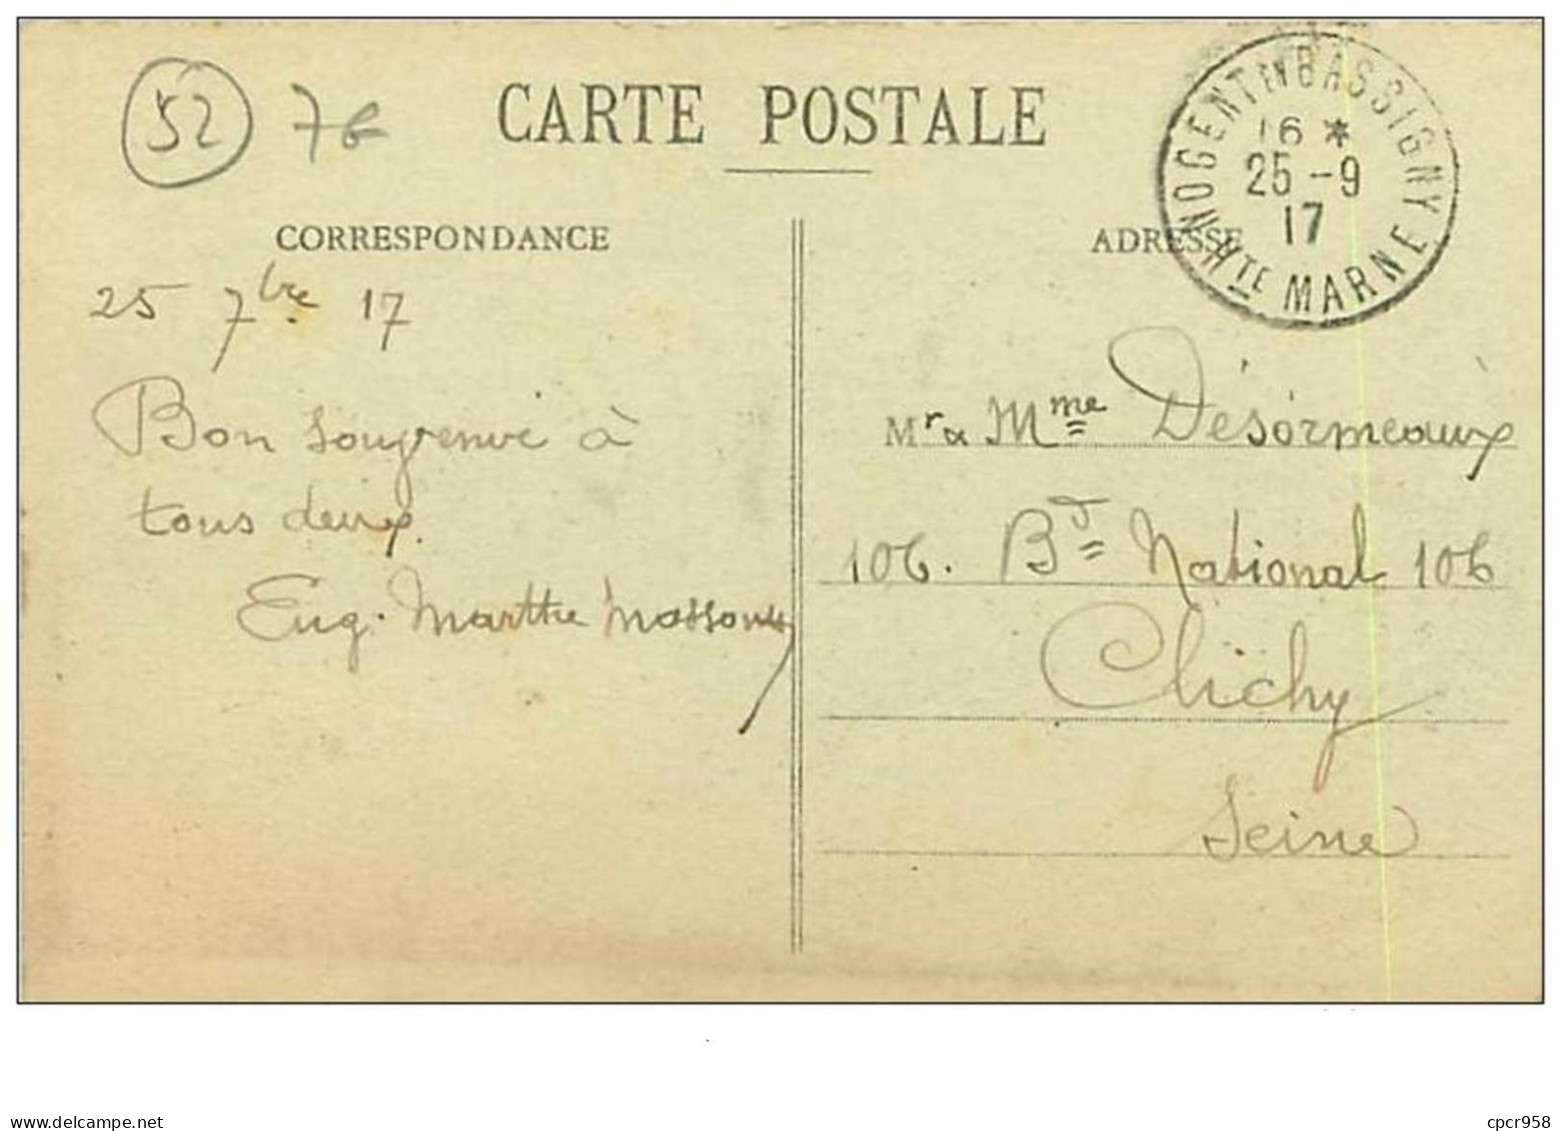 52 7€
CARTE POSTALE
NOGENT-EN-BASSIGNY
16 *
25 - 9
17
HTE MARNE
CORRESPONDANCE
ADRESSE
25 7bre 17
Bon souvenir à
tous deux.
Eug. Marthe
Mr & Mme Désormeaux
106. Bd National 106
Clichy
Seine
cpcr958